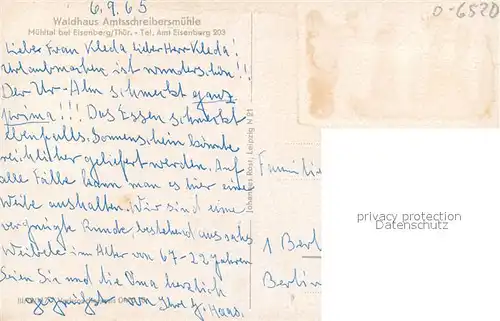 6.9.65
D-6520
Waldhaus Amtsschreibersmühle
Mühltal bei Eisenberg/Thür. • Tel. Amt Eisenberg 203
Lieber Frau Kleda Lieber Herr Kleda.
Urlaubmachen ist wunderschön!!
Der Ur-Alm schmeckt ganz
prima!!! Das Essen schmeckt
ebenfalls. Sonnenschein könnte
reichlicher geliefert werden. Auf
alle Fälle kann man es hier eine
Weile aushalten. Wir sind eine
vergnügte Runde, bestehend aus sechs
Weibele im Alter von 67-22 Jahren
Seien Sie und die Oma herzlich
gegrüßt von Ihrer G. Haas.
Johannes Rose, Leipzig N 21
Familie
1 Berl
Berlin
privacy protection
Datenschutz